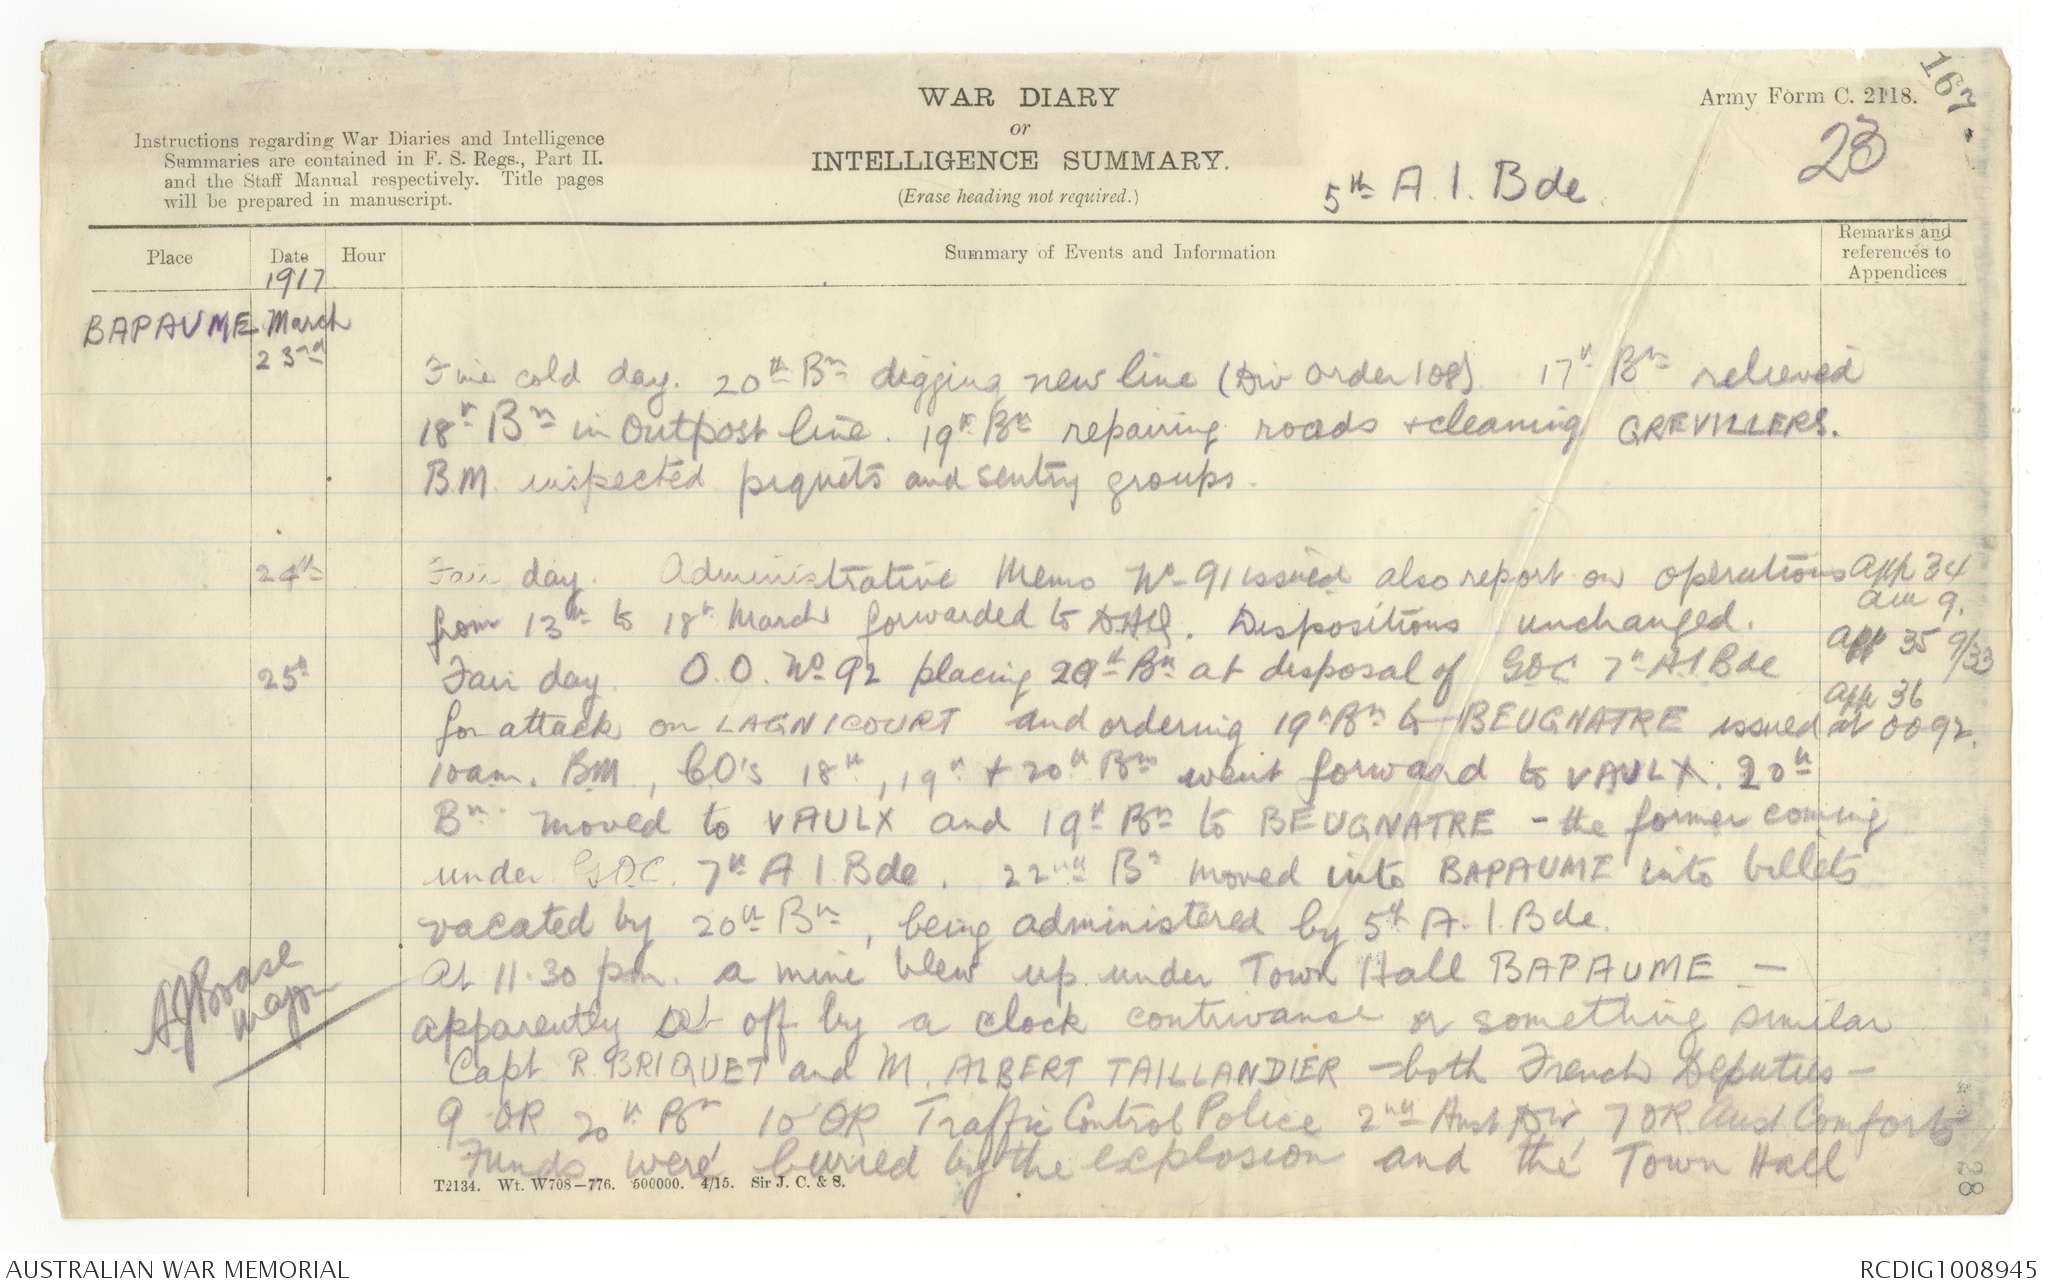 WAR DIARY
or
INTELLIGENCE SUMMARY.
(Erase heading not required.)
Army Form C. 2118.
167
23
Instructions regarding War Diaries and Intelligence
Summaries are contained in F. S. Regs., Part II.
and the Staff Manual respectively. Title pages
will be prepared in manuscript.
5th A. I. Bde
Place Date Hour Summary of Events and Information Remarks and references to Appendices
1917
BAPAUME March
23rd
Fine cold day. 20th Bn digging new line (Div Order 108). 17th Bn relieved
18th Bn in Outpost line. 19th Bn repairing roads + cleaning GREVILLERS.
B.M. inspected piquets and sentry groups.
24th Fair day. Administrative Memo No 91 issued also report on operations App 34
from 13th to 18th March forwarded to DHQ. Dispositions unchanged.
9.
App 35 9/33
25th Fair day. O.O. No 92 placing 20th Bn at disposal of GOC 7th A I Bde
App 36
for attack on LAGNICOURT and ordering 19th Bn to BEUGNATRE issued at OO92.
10am. BM, CO's 18th, 19th + 20th Bns went forward to VAULX. 20th
Bn moved to VAULX and 19th Bn to BEUGNATRE - the former coming
under GOC. 7th A I Bde. 22nd Bn moved into BAPAUME into billets
vacated by 20th Bn, being administered by 5th A. I. Bde.
At 11.30 pm. a mine blew up under Town Hall BAPAUME -
apparently set off by a clock contrivance or something similar
Capt R. BRIQUET and M. ALBERT TAILLANDIER - both French Deputies -
9 OR 20th Bn 10 OR Traffic Control Police 2nd Aust Div, 7 OR Aust Comforts
Funds were buried by the explosion and the Town Hall
Major
T2134. Wt. W708-776. 500000. 4/15. Sir J. C. & S.
28
AUSTRALIAN WAR MEMORIAL
RCDIG1008945